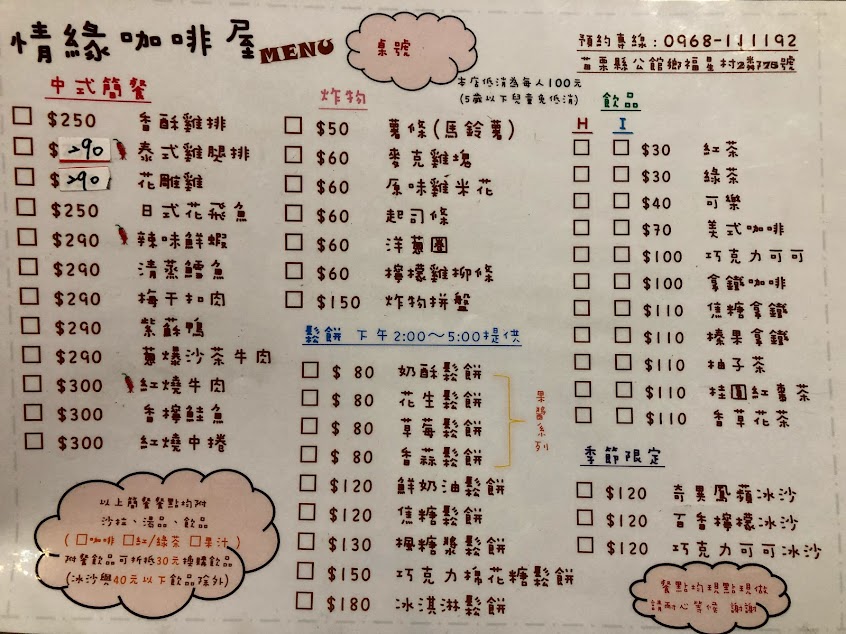 情緣咖啡屋 MENU
桌號
預約專線：0968-111192
苗栗縣公館鄉福星村2鄰75號
本店低消為每人100元
(5歲以下兒童免低消)
中式簡餐
$250 香酥雞排
$290 泰式雞腿排
$290 花雕雞
$250 日式花飛魚
$290 辣味鮮蝦
$290 清蒸鱈魚
$290 梅干扣肉
$290 紫蘇鴨
$290 蔥爆沙茶牛肉
$300 紅燒牛肉
$300 香檸鮭魚
$300 紅燒中捲
以上簡餐餐點均附
沙拉、湯品、飲品
(□咖啡 □紅/綠茶 □果汁)
附餐飲品可折抵30元換購飲品
(冰沙與40元以下飲品除外)
炸物
$50 薯條(馬鈴薯)
$60 麥克雞塊
$60 原味雞米花
$60 起司條
$60 洋蔥圈
$60 檸檬雞柳條
$150 炸物拼盤
鬆餅 下午2:00～5:00提供
$ 80 奶酥鬆餅
$ 80 花生鬆餅
$ 80 草莓鬆餅
$ 80 香蒜鬆餅
果醬系列
$120 鮮奶油鬆餅
$120 焦糖鬆餅
$130 楓糖漿鬆餅
$150 巧克力棉花糖鬆餅
$180 冰淇淋鬆餅
飲品
H I
$30 紅茶
$30 綠茶
$40 可樂
$70 美式咖啡
$100 巧克力可可
$100 拿鐵咖啡
$110 焦糖拿鐵
$110 榛果拿鐵
$110 柚子茶
$110 桂圓紅棗茶
$110 香草花茶
季節限定
$120 奇異鳳蘋冰沙
$120 百香檸檬冰沙
$120 巧克力可可冰沙
餐點均現點現做
請耐心等候 謝謝